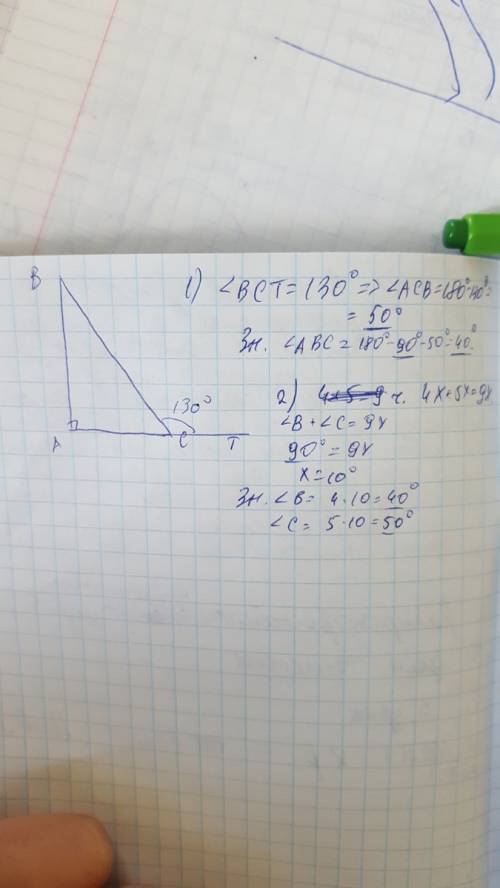 B
1) ∠BCT = 130° => ∠ACB = 180° - 130° =
= 50°
Зн. ∠ABC = 180° - 90° - 50° = 40°.
130°
A C T
2) 4+5=9 ч. 4x+5x=9x
∠B + ∠C = 9x
90° = 9x
x = 10°
Зн. ∠B = 4·10 = 40°
∠C = 5·10 = 50°